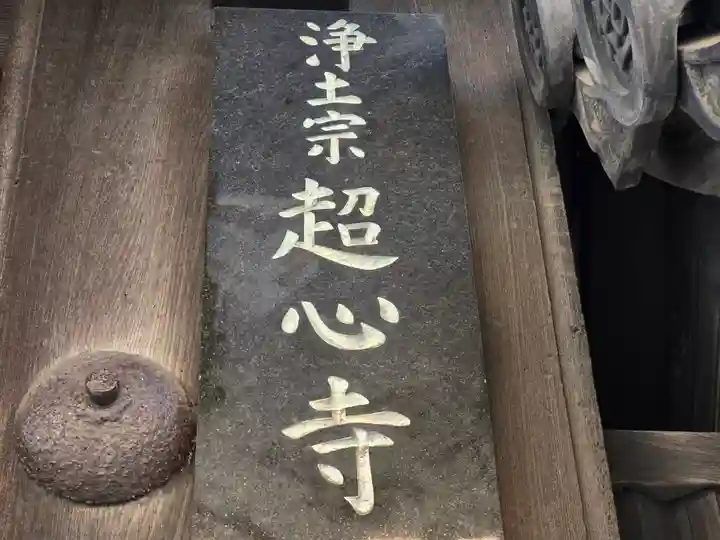 浄土宗 超心寺